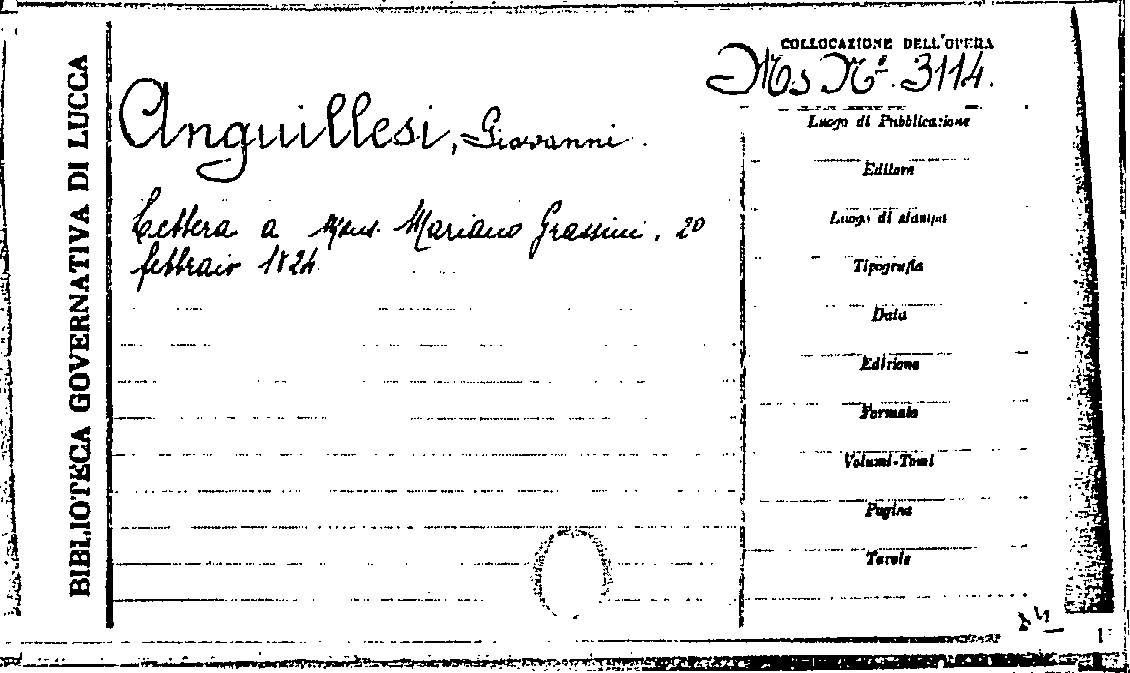 BIBLIOTECA GOVERNATIVA DI LUCCA
COLLOCAZIONE DELL'OPERA
Ms Nº. 3114.
Anguillesi, Giovanni.
Lettera a Mons. Mariano Grassini, 20
febbraio 1824
Luogo di Pubblicazione
Editore
Luogo di stampa
Tipografia
Data
Edizione
Formato
Volumi-Tomi
Pagine
Tavole